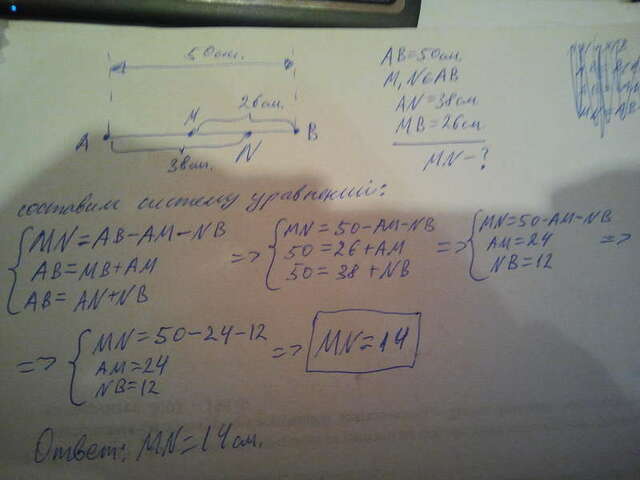 50см.
AB=50см
M,N∈AB
AN=38см
MB=26см
MN-?
26см.
A M N B
38см.
составим систему уравнений:
MN=AB-AM-NB
AB=MB+AM
AB=AN+NB
=> MN=50-AM-NB
50=26+AM
50=38+NB
=> MN=50-AM-NB
AM=24
NB=12
=>
=> MN=50-24-12
AM=24
NB=12
=> MN=14
Ответ: MN=14см.